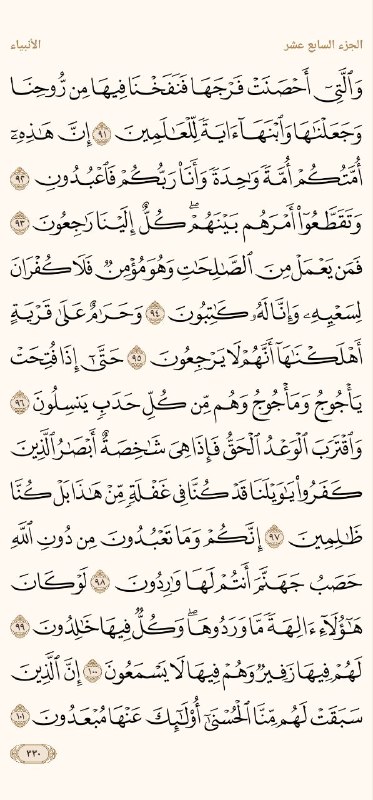 الجزء السابع عشر الأنبياء
وَٱلَّتِىٓ أَحْصَنَتْ فَرْجَهَا فَنَفَخْنَا فِيهَا مِن رُّوحِنَا
وَجَعَلْنَٰهَا وَٱبْنَهَآ ءَايَةً لِّلْعَٰلَمِينَ ٩١ إِنَّ هَٰذِهِۦٓ
أُمَّتُكُمْ أُمَّةً وَٰحِدَةً وَأَنَا۠ رَبُّكُمْ فَٱعْبُدُونِ ٩٢
وَتَقَطَّعُوٓا۟ أَمْرَهُم بَيْنَهُمْ ۖ كُلٌّ إِلَيْنَا رَٰجِعُونَ ٩٣
فَمَن يَعْمَلْ مِنَ ٱلصَّٰلِحَٰتِ وَهُوَ مُؤْمِنٌ فَلَا كُفْرَانَ
لِسَعْيِهِۦ وَإِنَّا لَهُۥ كَٰتِبُونَ ٩٤ وَحَرَٰمٌ عَلَىٰ قَرْيَةٍ
أَهْلَكْنَٰهَآ أَنَّهُمْ لَا يَرْجِعُونَ ٩٥ حَتَّىٰٓ إِذَا فُتِحَتْ
يَأْجُوجُ وَمَأْجُوجُ وَهُم مِّن كُلِّ حَدَبٍ يَنسِلُونَ ٩٦
وَٱقْتَرَبَ ٱلْوَعْدُ ٱلْحَقُّ فَإِذَا هِىَ شَٰخِصَةٌ أَبْصَٰرُ ٱلَّذِينَ
كَفَرُوا۟ يَٰوَيْلَنَا قَدْ كُنَّا فِى غَفْلَةٍ مِّنْ هَٰذَا بَلْ كُنَّا
ظَٰلِمِينَ ٩٧ إِنَّكُمْ وَمَا تَعْبُدُونَ مِن دُونِ ٱللَّهِ
حَصَبُ جَهَنَّمَ أَنتُمْ لَهَا وَٰرِدُونَ ٩٨ لَوْ كَانَ
هَٰٓؤُلَآءِ ءَالِهَةً مَّا وَرَدُوهَا ۖ وَكُلٌّ فِيهَا خَٰلِدُونَ ٩٩
لَهُمْ فِيهَا زَفِيرٌ وَهُمْ فِيهَا لَا يَسْمَعُونَ ١٠٠ إِنَّ ٱلَّذِينَ
سَبَقَتْ لَهُم مِّنَّا ٱلْحُسْنَىٰٓ أُو۟لَٰٓئِكَ عَنْهَا مُبْعَدُونَ ١٠١
٣٣٠